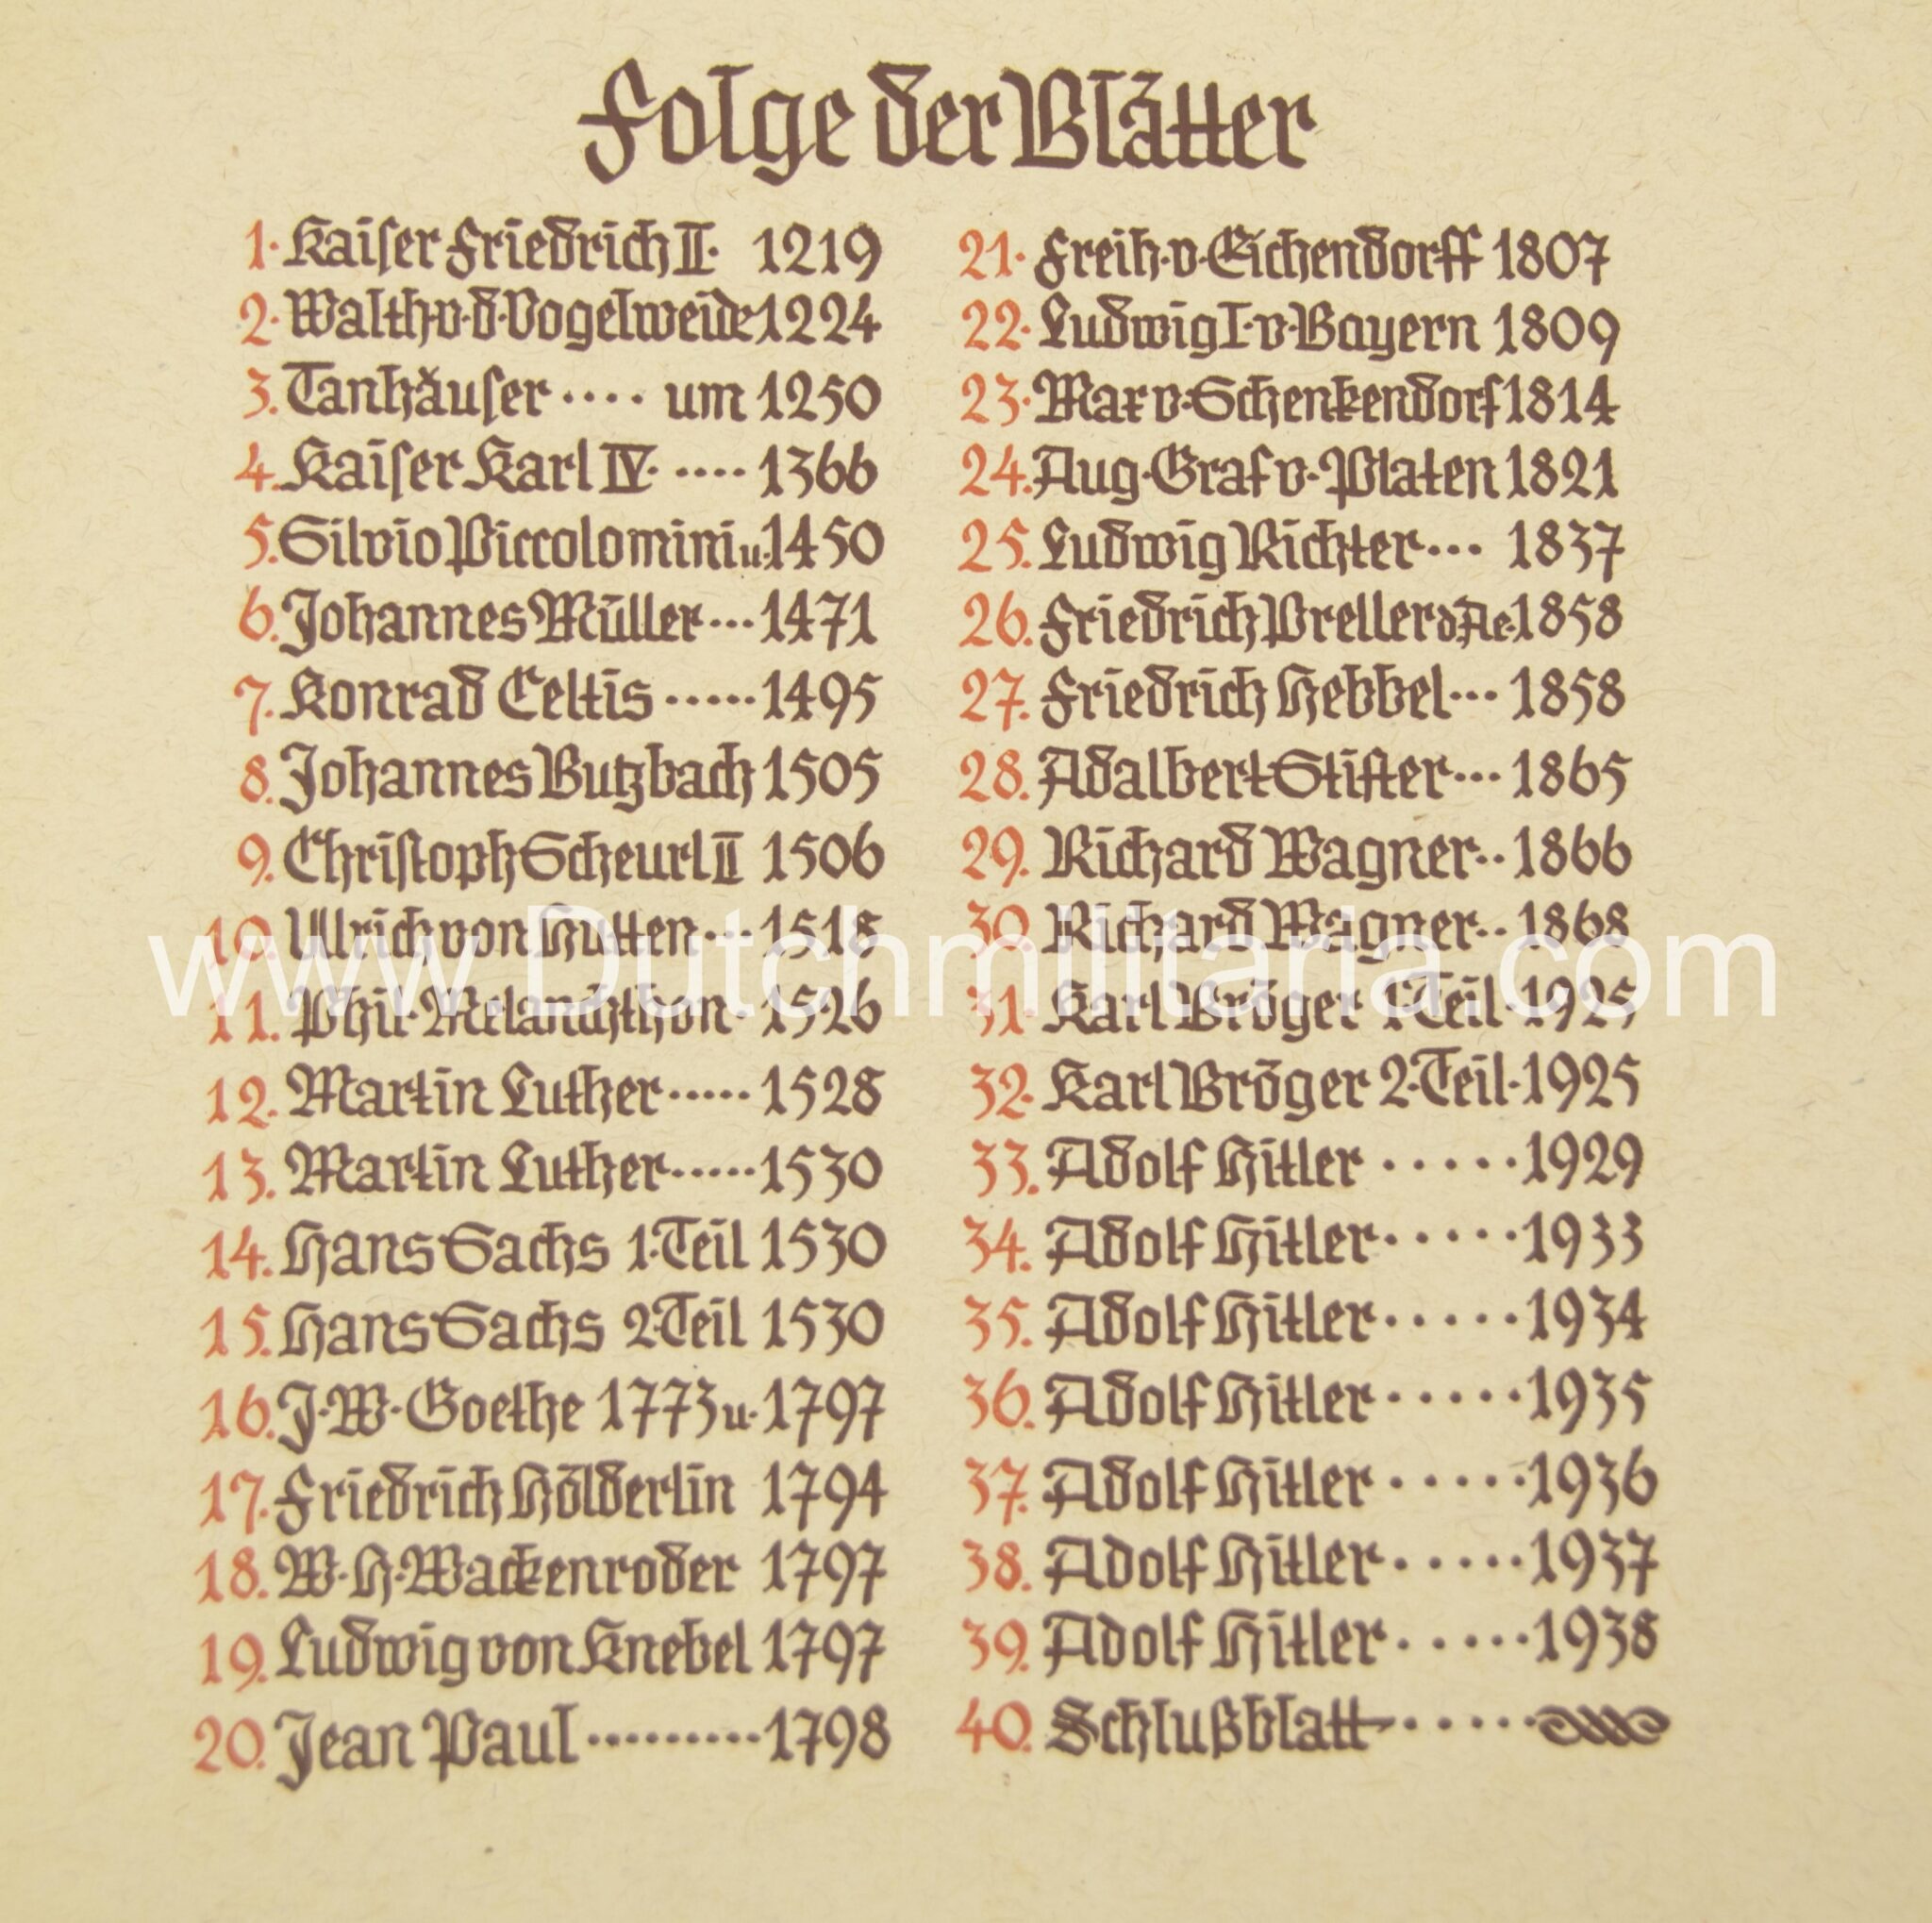 Folge der Blätter
1. Kaiser Friedrich II. 1219
2. Walth. v. d. Vogelweide 1224
3. Tanhäuser .... um 1250
4. Kaiser Karl IV. .... 1366
5. Silvio Piccolomini u. 1450
6. Johannes Müller ... 1471
7. Konrad Celtis ..... 1495
8. Johannes Butzbach 1505
9. Christoph Scheurl II 1506
10. Ulrich von Hutten ... 1518
11. Phil. Melanchthon. 1526
12. Martin Luther ..... 1528
13. Martin Luther ..... 1530
14. Hans Sachs 1. Teil 1530
15. Hans Sachs 2. Teil 1530
16. J. W. Goethe 1773 u. 1797
17. Friedrich Hölderlin 1794
18. W. H. Wackenroder 1797
19. Ludwig von Knebel 1797
20. Jean Paul ......... 1798
21. Freih. v. Eichendorff 1807
22. Ludwig I. v. Bayern 1809
23. Max v. Schenkendorf 1814
24. Aug. Graf v. Platen 1821
25. Ludwig Richter ... 1837
26. Friedrich Preller d. Ae. 1858
27. Friedrich Hebbel ... 1858
28. Adalbert Stifter ... 1865
29. Richard Wagner .. 1866
30. Richard Wagner .. 1868
31. Karl Bröger 1. Teil. 1925
32. Karl Bröger 2. Teil. 1925
33. Adolf Hitler ..... 1929
34. Adolf Hitler ..... 1933
35. Adolf Hitler ..... 1934
36. Adolf Hitler ..... 1935
37. Adolf Hitler ..... 1936
38. Adolf Hitler ..... 1937
39. Adolf Hitler ..... 1938
40. Schlußblatt .....
www.Dutchmilitaria.com